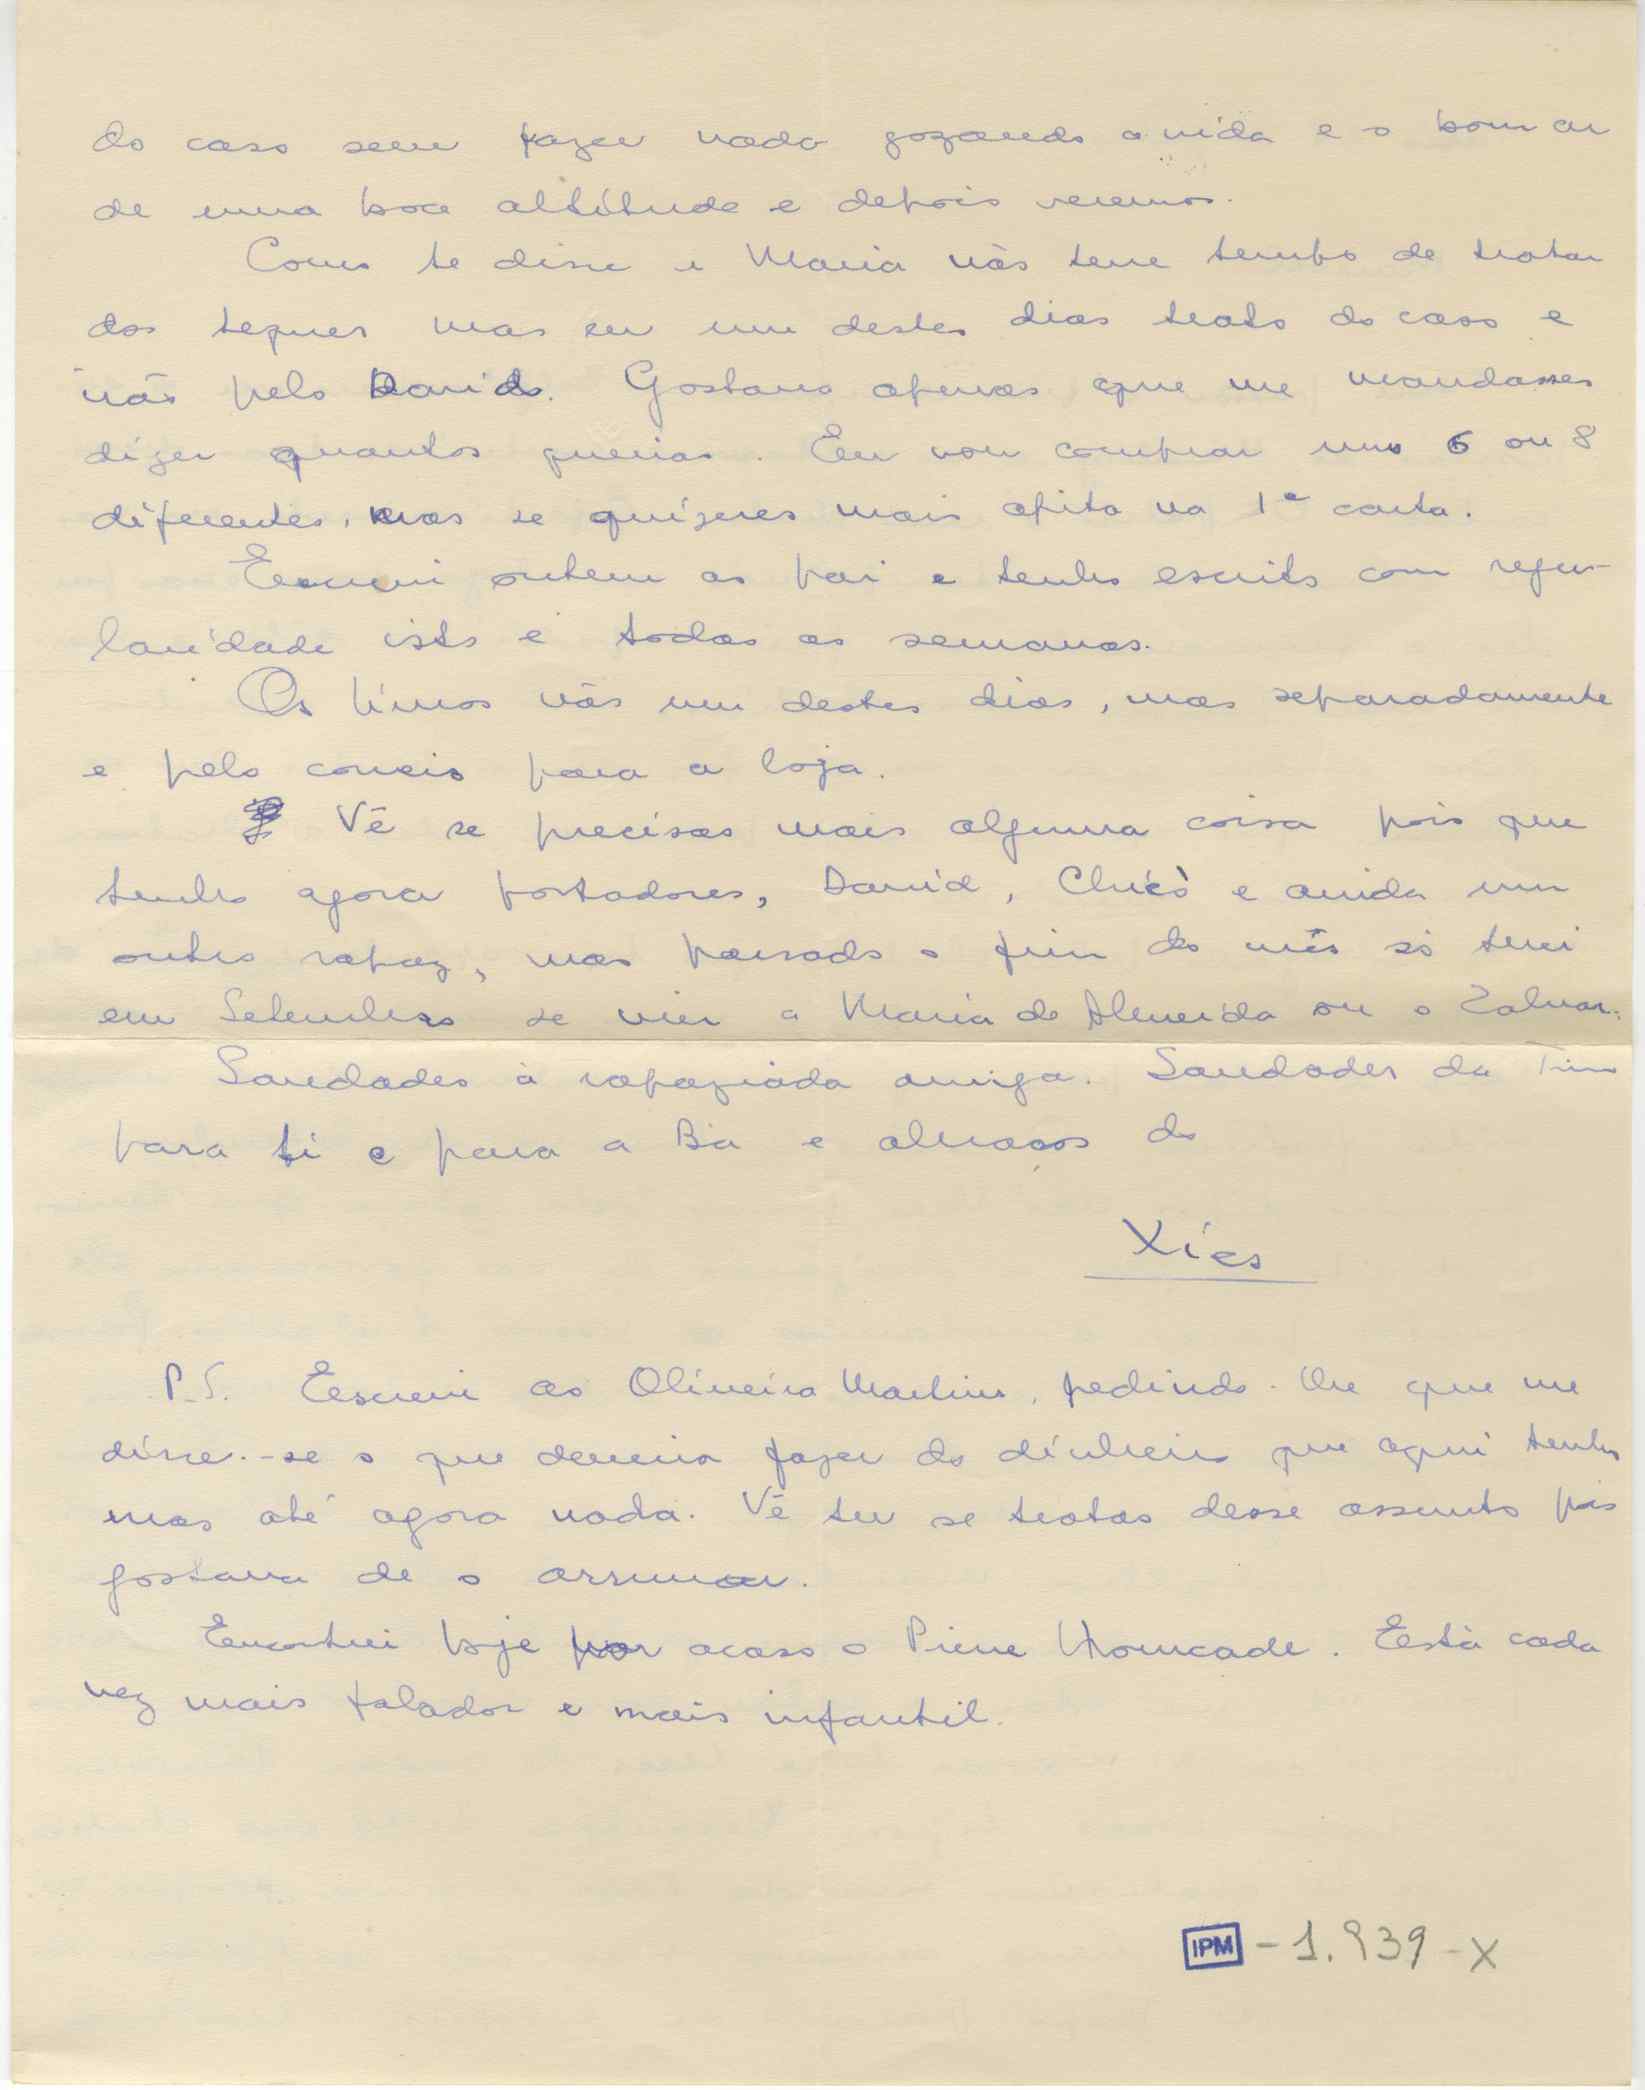 do caso sem fazer nada gozando a vida e o bom ar
de uma boa altitude e depois veremos.
Como te disse a Maria não teve tempo de tratar
dos leques mas eu um destes dias trato do caso e
vão pelo David. Gostava apenas que me mandasses
dizer quantos querias. Eu vou comprar uns 6 ou 8
diferentes, mas se quizeres mais apita na 1ª carta.
Escrevi ontem ao pai e tenho escrito com regu-
laridade isto é todas as semanas.
Os livros vão um destes dias, mas separadamente
e pelo correio para a loja.
Vê se precisas mais alguma coisa pois que
tenho agora portadores, David, Chicò e ainda um
outro rapaz, mas passado o fim do mês só terei
em Setembro se vier a Maria de Almeida ou o Zaluar.
Saudades à rapaziada amiga. Saudades da
para ti e para a Bia e abraços do
Xico
P.S. Escrevi ao Oliveira Martins, pedindo-lhe que me
disse-se o que deveria fazer do dinheiro que aqui tenho
mas até agora nada. Vê tu se tratas desse assunto pois
gostava de o arrumar.
Encontrei hoje por acaso o Pierre Hourcade. Está cada
vez mais falador e mais infantil.
IPM - 1.939 - X